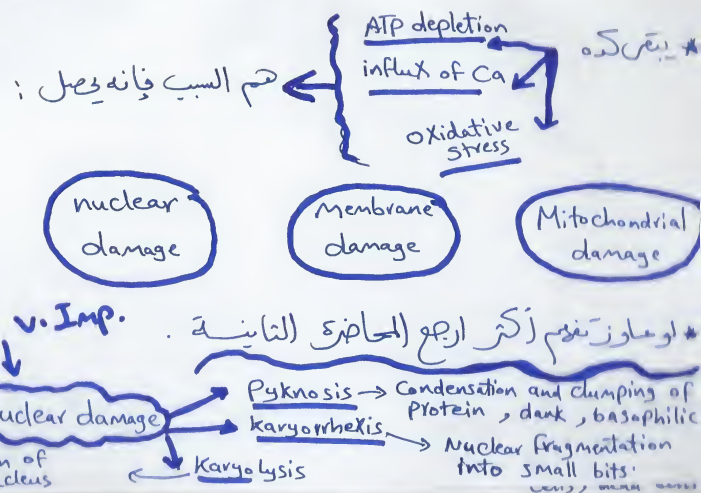 * يبقى كده
ATP depletion
influx of Ca
oxidative
stress
هم السبب فإنه يحصل :
nuclear
damage
membrane
damage
Mitochondrial
damage
* لو عاوز تفهم أكتر ارجع المحاضرة التانية .
v. Imp.
nuclear damage
Pyknosis → Condensation and clumping of
protein, dark, basophilic
karyorrhexis → Nuclear fragmentation
into small bits.
Karyolysis